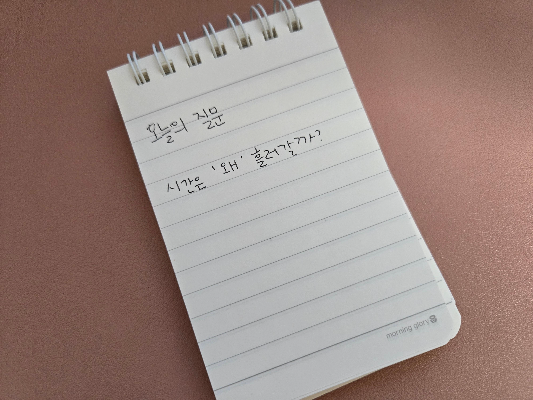 오늘의 질문
시간은 '왜' 흘러갈까?
morning glory